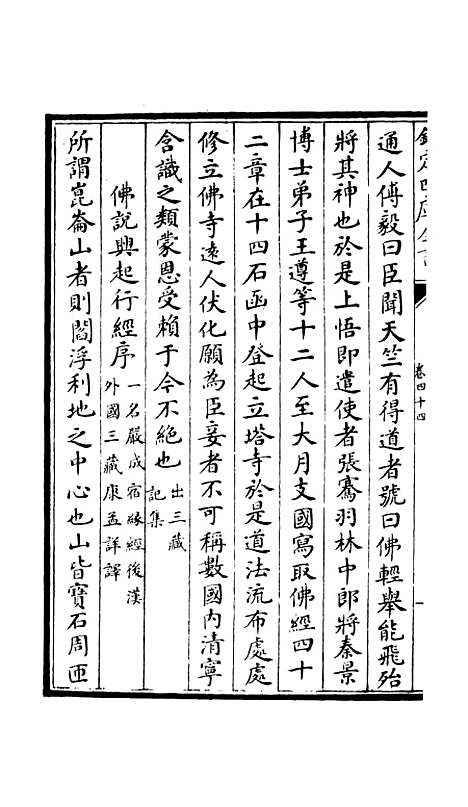 通人傅毅曰臣聞天竺有得道者號曰佛輕舉能飛殆
將其神也於是上悟即遣使者張騫羽林中郎將秦景
博士弟子王遵等十二人至大月支國寫取佛經四十
二章在十四石函中登起立塔寺於是道法流布處處
修立佛寺遠人伏化願為臣妾者不可稱數國內清寧
含識之類蒙恩受賴于今不絶也 出三藏
記集
佛說興起行經序 一名嚴成宿緣經後漢
外國三藏康孟詳譯
所謂崑崙山者則閻浮利地之中心也山皆寶石周匝
卷四十四